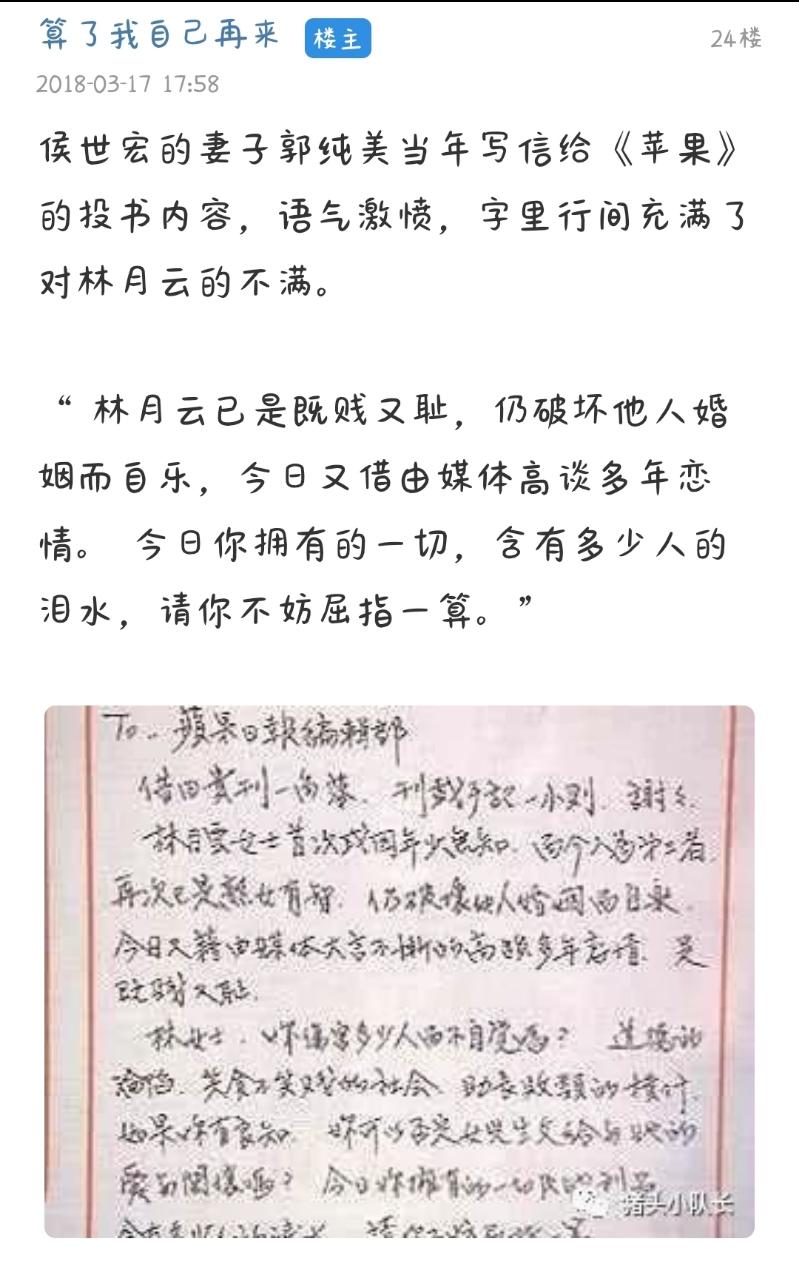 算了我自己再来 楼主 24楼
2018-03-17 17:58
侯世宏的妻子郭纯美当年写信给《苹果》
的投书内容，语气激愤，字里行间充满了
对林月云的不满。
“ 林月云已是既贱又耻，仍破坏他人婚
姻而自乐，今日又借由媒体高谈多年恋
情。 今日你拥有的一切，含有多少人的
泪水，请你不妨屈指一算。”
To. 蘋果日報編輯部
借由貴刊一角落. 刊載手記一小則. 謝謝.
林月雲女士首次或因年少無知. 而介入為第三者.
再次已是熟女有智. 仍破壞他人婚姻而自樂.
今日又藉由媒体大言不慚的高談多年戀情. 是
既賤又恥.
林女士. 妳傷害多少人而不自覺嗎? 道德的
淪陷. 笑貧不笑 的社会.
如果妳有良知. 妳可以否定女兒生父給与她的
愛与關懷嗎? 今日妳擁有的一切
猪头小队长